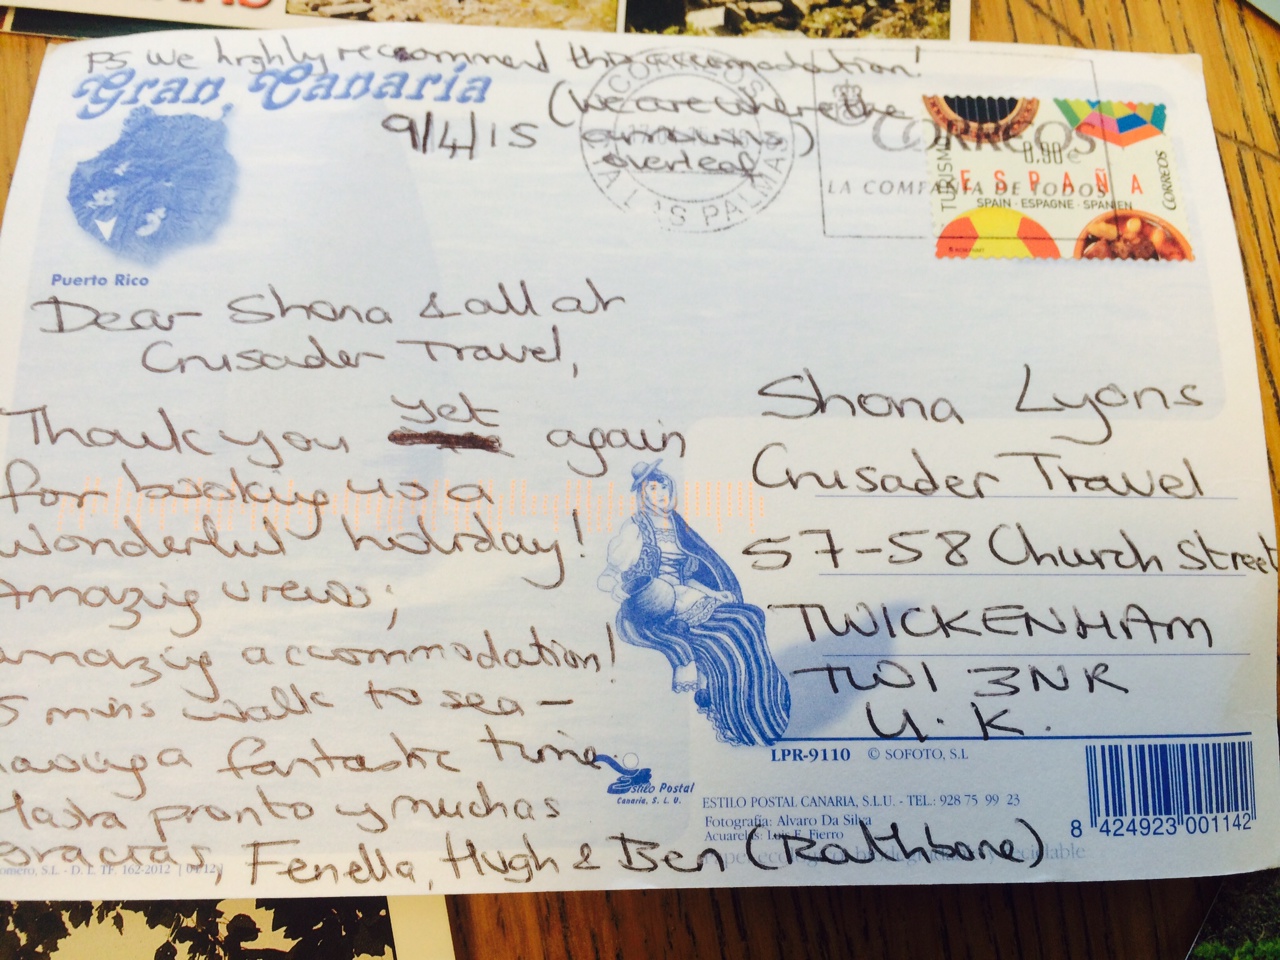 PS We highly recommend this accomodation!
Gran Canaria
(we are where the
arrow is
overleaf)
9/4/15
CORREOS
LAS PALMAS
CORREOS
LA COMPAÑÍA DE TODOS
TURISMO
0,90€
ESPAÑA
SPAIN - ESPAGNE - SPANIEN
CORREOS
Puerto Rico
Dear Shona & all at
Crusader Travel,
Thank you yet again
for booking us a
wonderful holiday!
Amazing views;
amazing accommodation!
5 mins walk to sea –
having a fantastic time.
Hasta pronto y muchas
gracias, Fenella, Hugh & Ben (Rathbone)
Shona Lyons
Crusader Travel
57-58 Church Street
TWICKENHAM
TW1 3NR
U.K.
LPR-9110 © SOFOTO, S.L
Estilo Postal
Canaria, S. L. U.
ESTILO POSTAL CANARIA, S.L.U. - TEL.: 928 75 99 23
Fotografía: Alvaro Da Silva
Acuarelas: Luis F. Fierro
8 424923 001142
omero, S.L. - D. L. TF. 162-2012